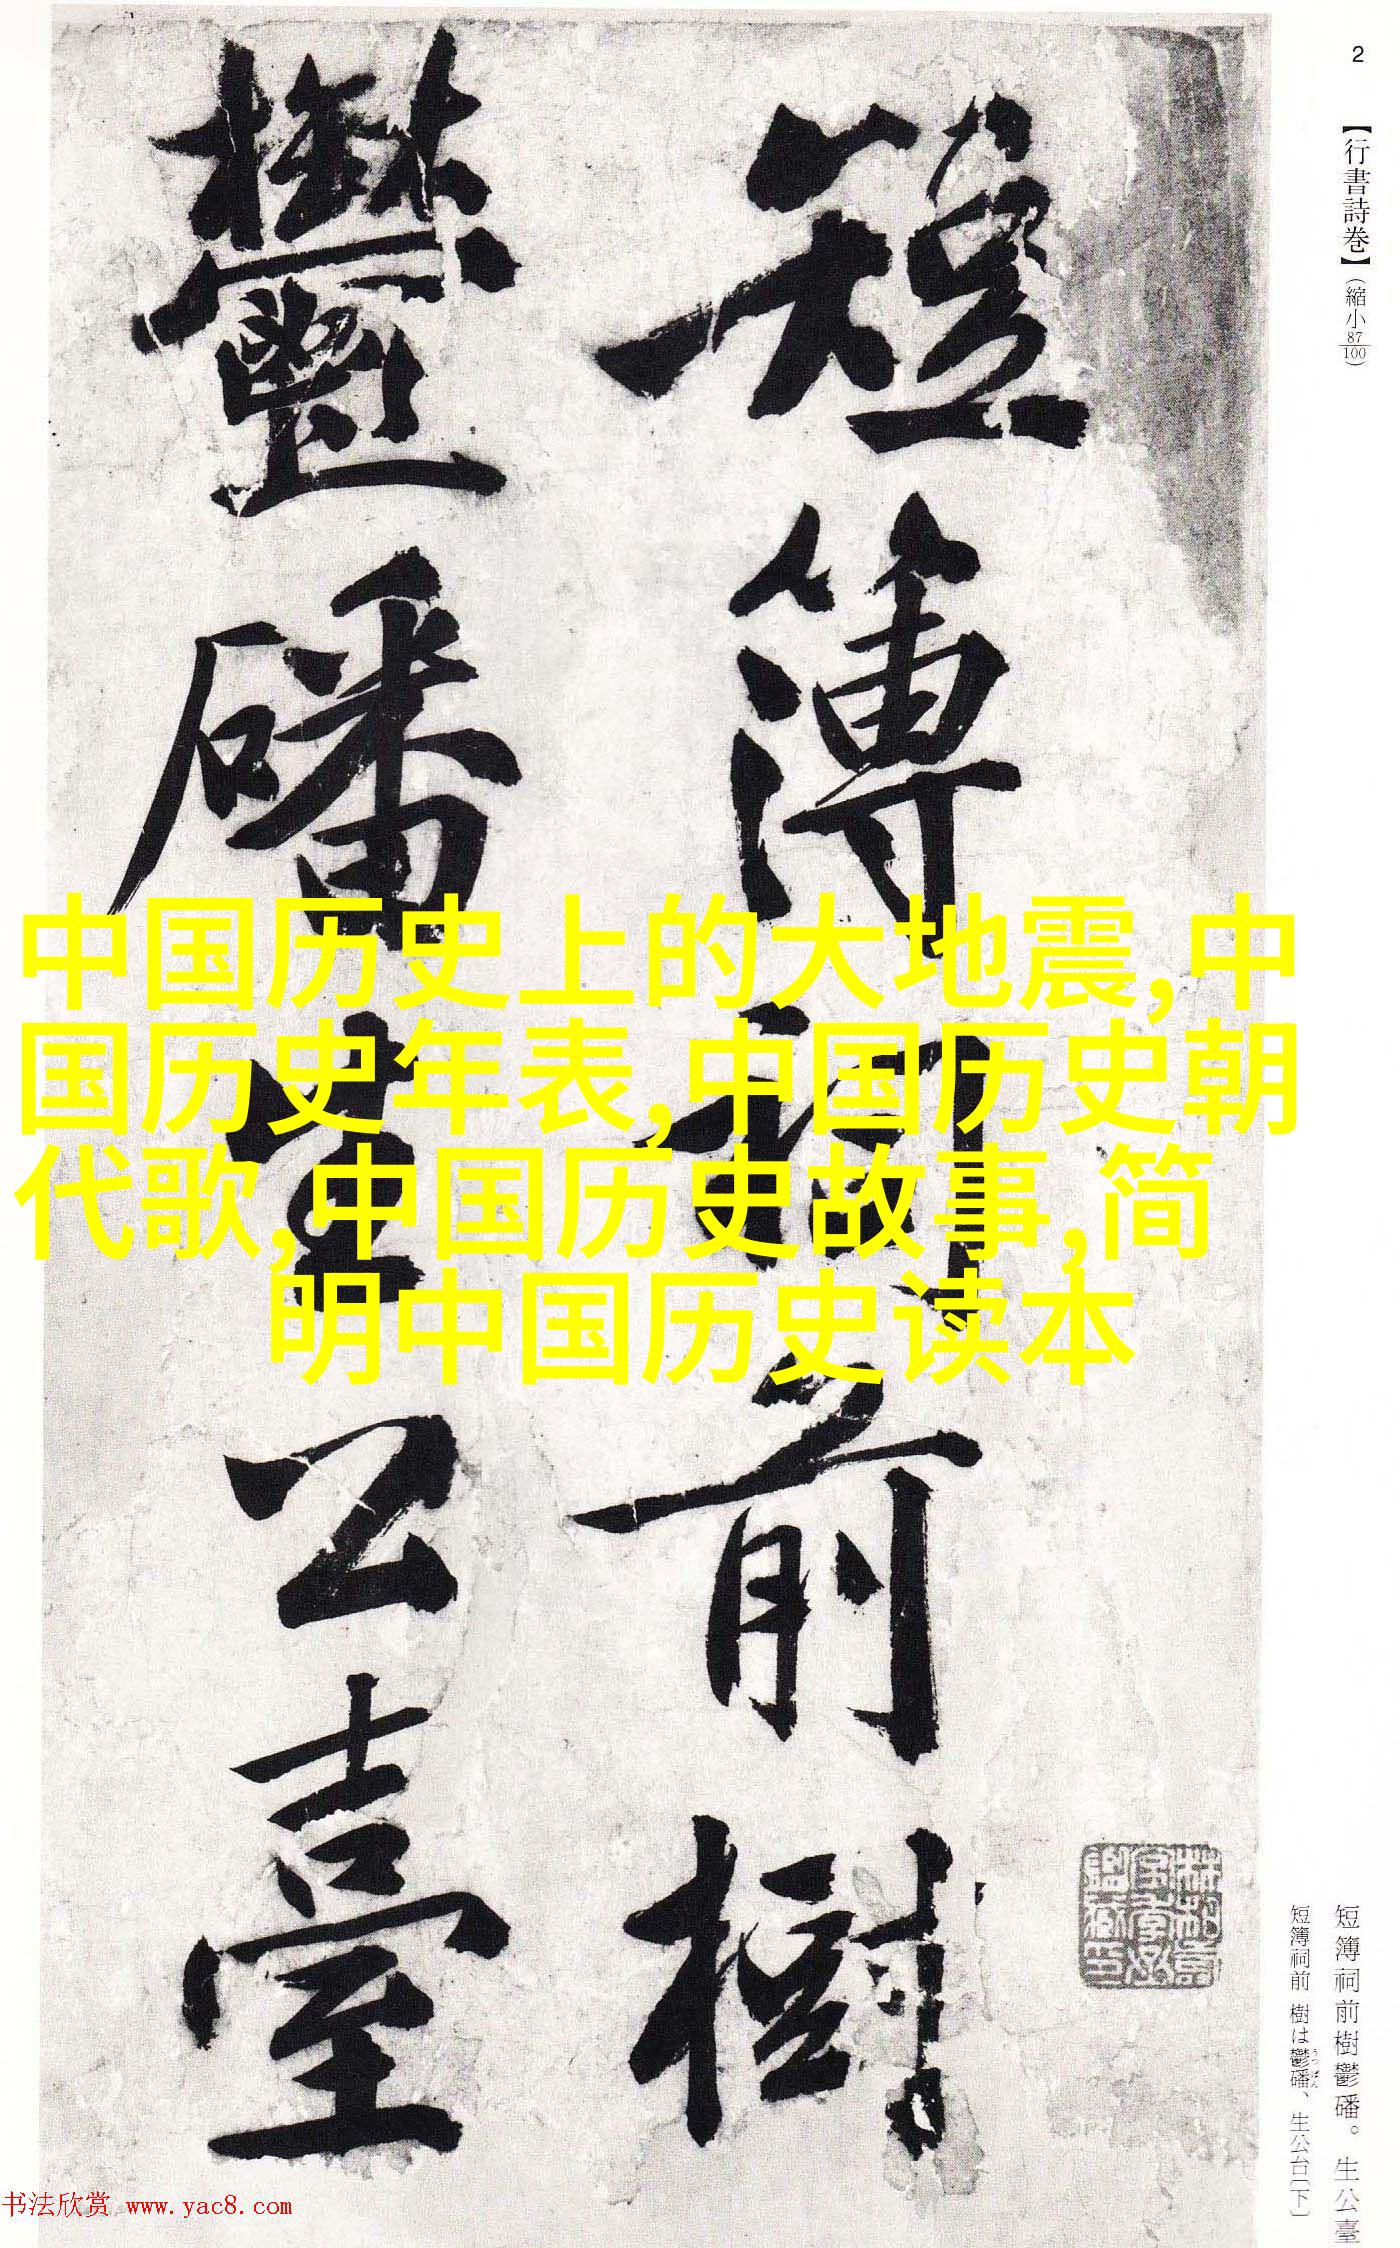 2
【行書詩巻】(縮小87/100)
短簿祠前樹
鬱磻生公臺
中国历史上的大地震,中
国历史年表,中国历史朝
代歌,中国历史故事,简
明中国历史读本
短簿祠前樹鬱磻。生公臺
短簿祠前 樹は鬱磻、生公台(下)
うつばん
书法欣赏 www.yac8.com